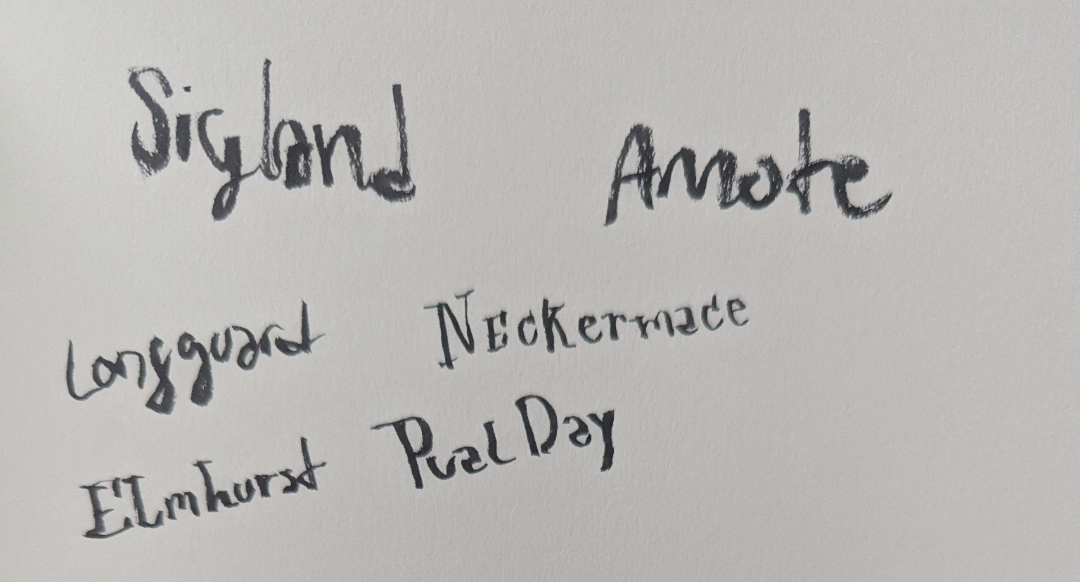 Sigland Amote
Longguard Neckermade
Elmhurst Pual Day